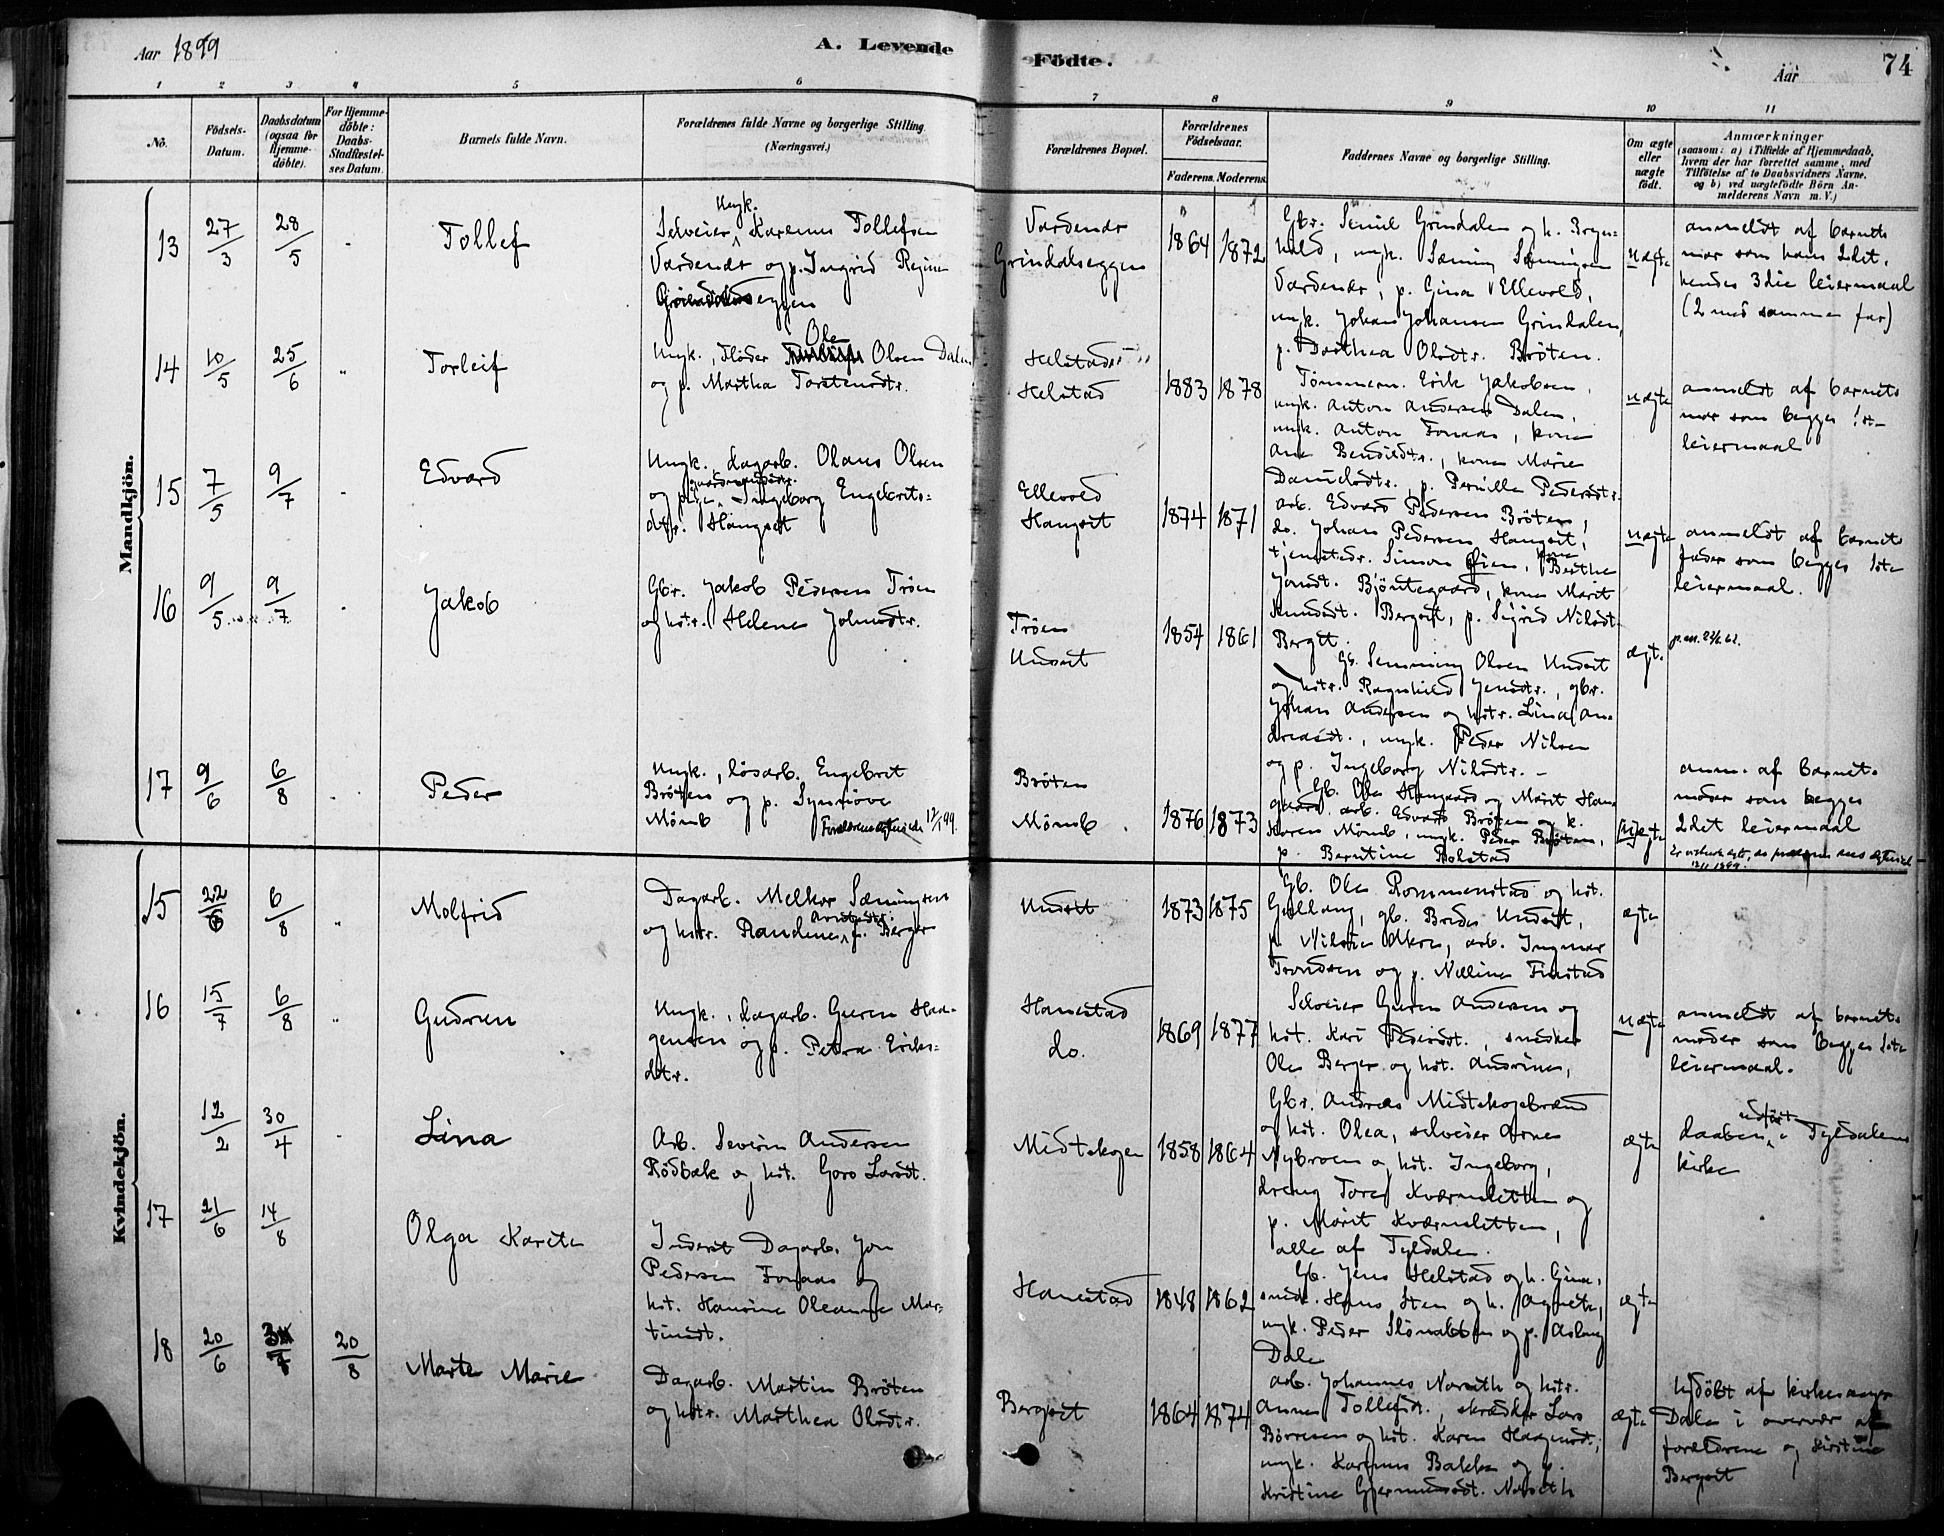 Aar 1899
A. Levende
Fødte.
Aar
74
1 2 3 4 5 6 7 8 9 10 11
No.
Födsels-
Datum.
Daabsdatum
(ogsaa for
Hjemme-
döbte).
For Hjemme-
döbte:
Daabs-
Stadfæstel-
ses Datum.
Barnets fulde Navn.
Forældrenes fulde Navne og borgerlige Stilling.
(Næringsvei.)
Forældrenes Bopæl.
Forældrenes
Födselsaar.
Faderens. Moderens.
Faddernes Navne og borgerlige Stilling.
Om ægte
eller
uægte
födt.
Anmærkninger
(saasom: a) i Tilfælde af Hjemmedaab,
hvem der har forrettet samme, med
Tilföielse af to Daabsvidners Navne,
og b) ved uægtefödte Börn An-
melderens Navn m. V.)
Mandkjön.
13 27/3 28/5 Tollef
Ungk.
Selveier Karenus Tollefsen
Vardenær og p. Ingrid Regine
eggen
Vardenær
Grindalseggen
1864 1872
Gbr. Semil Grindalen og h. Bryn-
hild, ungk. Sæming Sæmingsen
Vardenær, p. Gina Ellevold,
ungk. Johan Johansen Grindalen,
p. Dorthea Olsdtr. Bröten.
uægte
anmeldt af barnets
mor som hans 2det,
hendes 3die leiermaal
(2 med samme far)
14 10/5 25/6 Torleif
Ungk., Flöder Ole Olsen Dalen
og p. Martha Torstensdtr.
Helstad
Helstad
1883 1878
Tömmerm. Erik Jakobsen,
ungk. Anton Andersen Dalen,
ungk. Anton Fonaas, kone
Ane Bendiksdtr., kone Marie
Danielsdtr., p. Pernille Pedersdtr.
uægte
anmeldt af barnets
mor som begges 1ste
leiermaal
15 7/5 9/7 Edvard
Ungk. dagarb. Olaus Olsen
og pige Ingeborg Engebrets-
dtr. Hangset
Ellevold
Hangset
1874 1871
arb. Edvard Pedersen Bröten,
do. Johan Pedersen Hangset,
tjenestedr. Simon Öien, kone Berthe
Jonsdt. Bjöntegaard, kone Marit
Knudsdt. Bergset, p. Sigrid Nilsdt.
Bergst.
uægte
anmeldt af barnets
fader som begges 1ste
leiermaal.
16 9/5 9/7 Jakob
Gbr. Jakob Pedersen Tröen
og hstr. Helene Johnsdtr.
Tröen
Undset
1854 1861
Gb. Semming Olsen Undset
og hstr. Ragnhild Jensdtr., gbr.
Johan Andersen og hstr. Lina An-
dreasdt., ungk. Peder Nilsen
og p. Ingeborg Nilsdtr.
ægt.
17 9/6 6/8 Peder
Ungk., lösarb. Engebret
Bröten og p. Synnöve
Mömb
12/11 99.
Bröten
Mömb
1876 1873
Gb. Ole Haugaard og Marit Hau-
gaard, arb. Edvard Bröten og k.
Karen Mömb, ungk. Peder Bröten,
p. Berntine Bolstad
(u)ægte
anm. af barnets
moder som begges
2det leiermaal
Kvindekjön.
15 22/6 6/8 Molfrid
Dagarb. Melkor Sæmingsen
og hstr. Randine f. Berger
Undset
1873 1875
Gb. Ole Rommenstad og hst.
Gullaug, gb. Brede Undset,
p. Nilsia Akre, arb. Ingmar
Trondsen og p. Nelline Finstad
ægte
16 15/7 6/8 Gudrun
Ungk., dagarb. Guren Haa-
gensen og p. Petra Eriks-
dtr.
Hanestad
do.
1869 1877
Selveier Guren Andersen og
hst. Kari Pedersdt., snedker
Ole Berger og hst. Andrine,
uægte
anmeldt af barnets
moder som begges 1ste
leiermaal.
12/2 30/4 Lina
Arb. Severin Andersen
Rödbæk og hst. Goro Larsdt.
Midtskogen
1858 1864
Gbr. Andreas Midtskogebrænd
og hst. Olea, selveier Arne
Nybroen og hst. Ingeborg,
dreng Tore Kværnsletten og
p. Marit Kværnsletten,
alle af Tyldalen.
ægte
daaben udfört i Tyldalens
kirke
17 21/6 14/8 Olga Karete
Inderst Dagarb. Jon
Pedersen Fonaas og
hst. Hansine Oleanne Mar-
tinsdt.
Hanestad
1848 1862
Gb. Jens Helstad og h. Gina,
snedk. Hans Sten og h. Agnete,
ungk. Peder og p. Aslaug
Dale
ægte
18 20/6 20/8 Marte Marie
Dagarb. Martin Bröten
og hstr. Marthea Olsdtr.
Bergset
1864 1874
arb. Johannes Narseth og hstr.
Anne Tollefsdt., skrædder Lars
Börresen og hst. Karen Haagensdt.,
ungk. Karenus Bakke og p.
Kristine Gjermundsdt. Narseth
ægte
hjdöbt af kirkesanger
Dale i overvær af
forældrene og Kirstine
Bergset